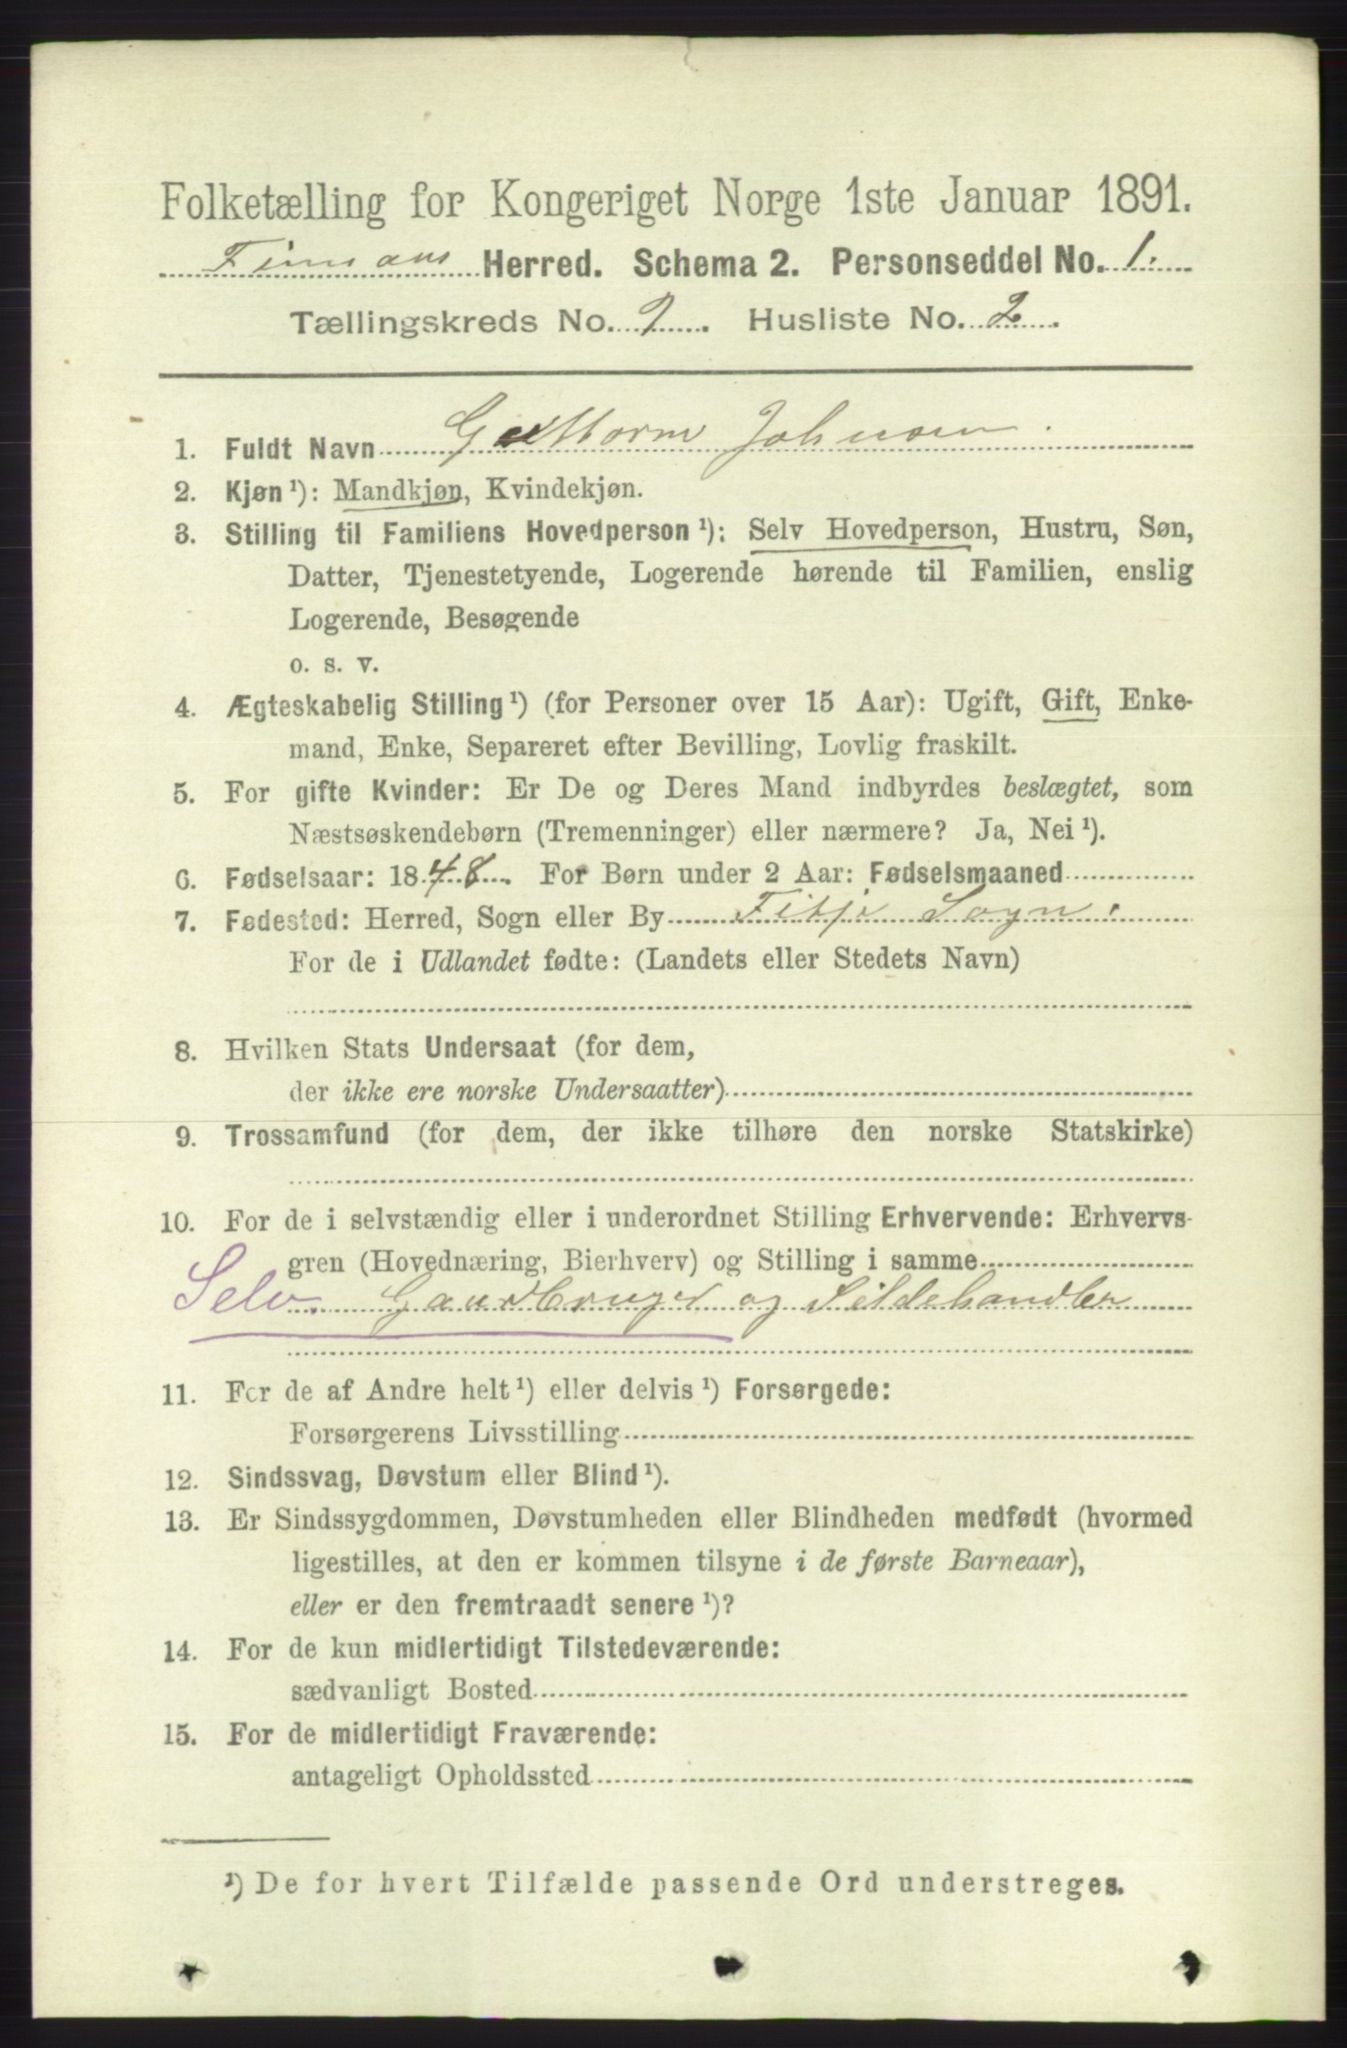 Folketælling for Kongeriget Norge 1ste Januar 1891.
Finnaas Herred. Schema 2. Personseddel No. 1.
Tællingskreds No. 9. Husliste No. 2.
1. Fuldt Navn Guttorm Johnsen.
2. Kjøn ¹): Mandkjøn, Kvindekjøn.
3. Stilling til Familiens Hovedperson ¹): Selv Hovedperson, Hustru, Søn,
Datter, Tjenestetyende, Logerende hørende til Familien, enslig
Logerende, Besøgende
o. s. v.
4. Ægteskabelig Stilling ¹) (for Personer over 15 Aar): Ugift, Gift, Enke-
mand, Enke, Separeret efter Bevilling, Lovlig fraskilt.
5. For gifte Kvinder: Er De og Deres Mand indbyrdes beslægtet, som
Næstsøskendebørn (Tremenninger) eller nærmere? Ja, Nei ¹).
6. Fødselsaar: 1848. For Børn under 2 Aar: Fødselsmaaned
7. Fødested: Herred, Sogn eller By Fitje Sogn.
For de i Udlandet fødte: (Landets eller Stedets Navn)
8. Hvilken Stats Undersaat (for dem,
der ikke ere norske Undersaatter)
9. Trossamfund (for dem, der ikke tilhøre den norske Statskirke)
10. For de i selvstændig eller i underordnet Stilling Erhvervende: Erhvervs-
gren (Hovednæring, Bierhverv) og Stilling i samme
Selv. Gaardbruger og Sildehandler
11. For de af Andre helt ¹) eller delvis ¹) Forsørgede:
Forsørgerens Livsstilling
12. Sindssvag, Døvstum eller Blind ¹).
13. Er Sindssygdommen, Døvstumheden eller Blindheden medfødt (hvormed
ligestilles, at den er kommen tilsyne i de første Barneaar),
eller er den fremtraadt senere ¹)?
14. For de kun midlertidigt Tilstedeværende:
sædvanligt Bosted
15. For de midlertidigt Fraværende:
antageligt Opholdssted
¹) De for hvert Tilfælde passende Ord understreges.